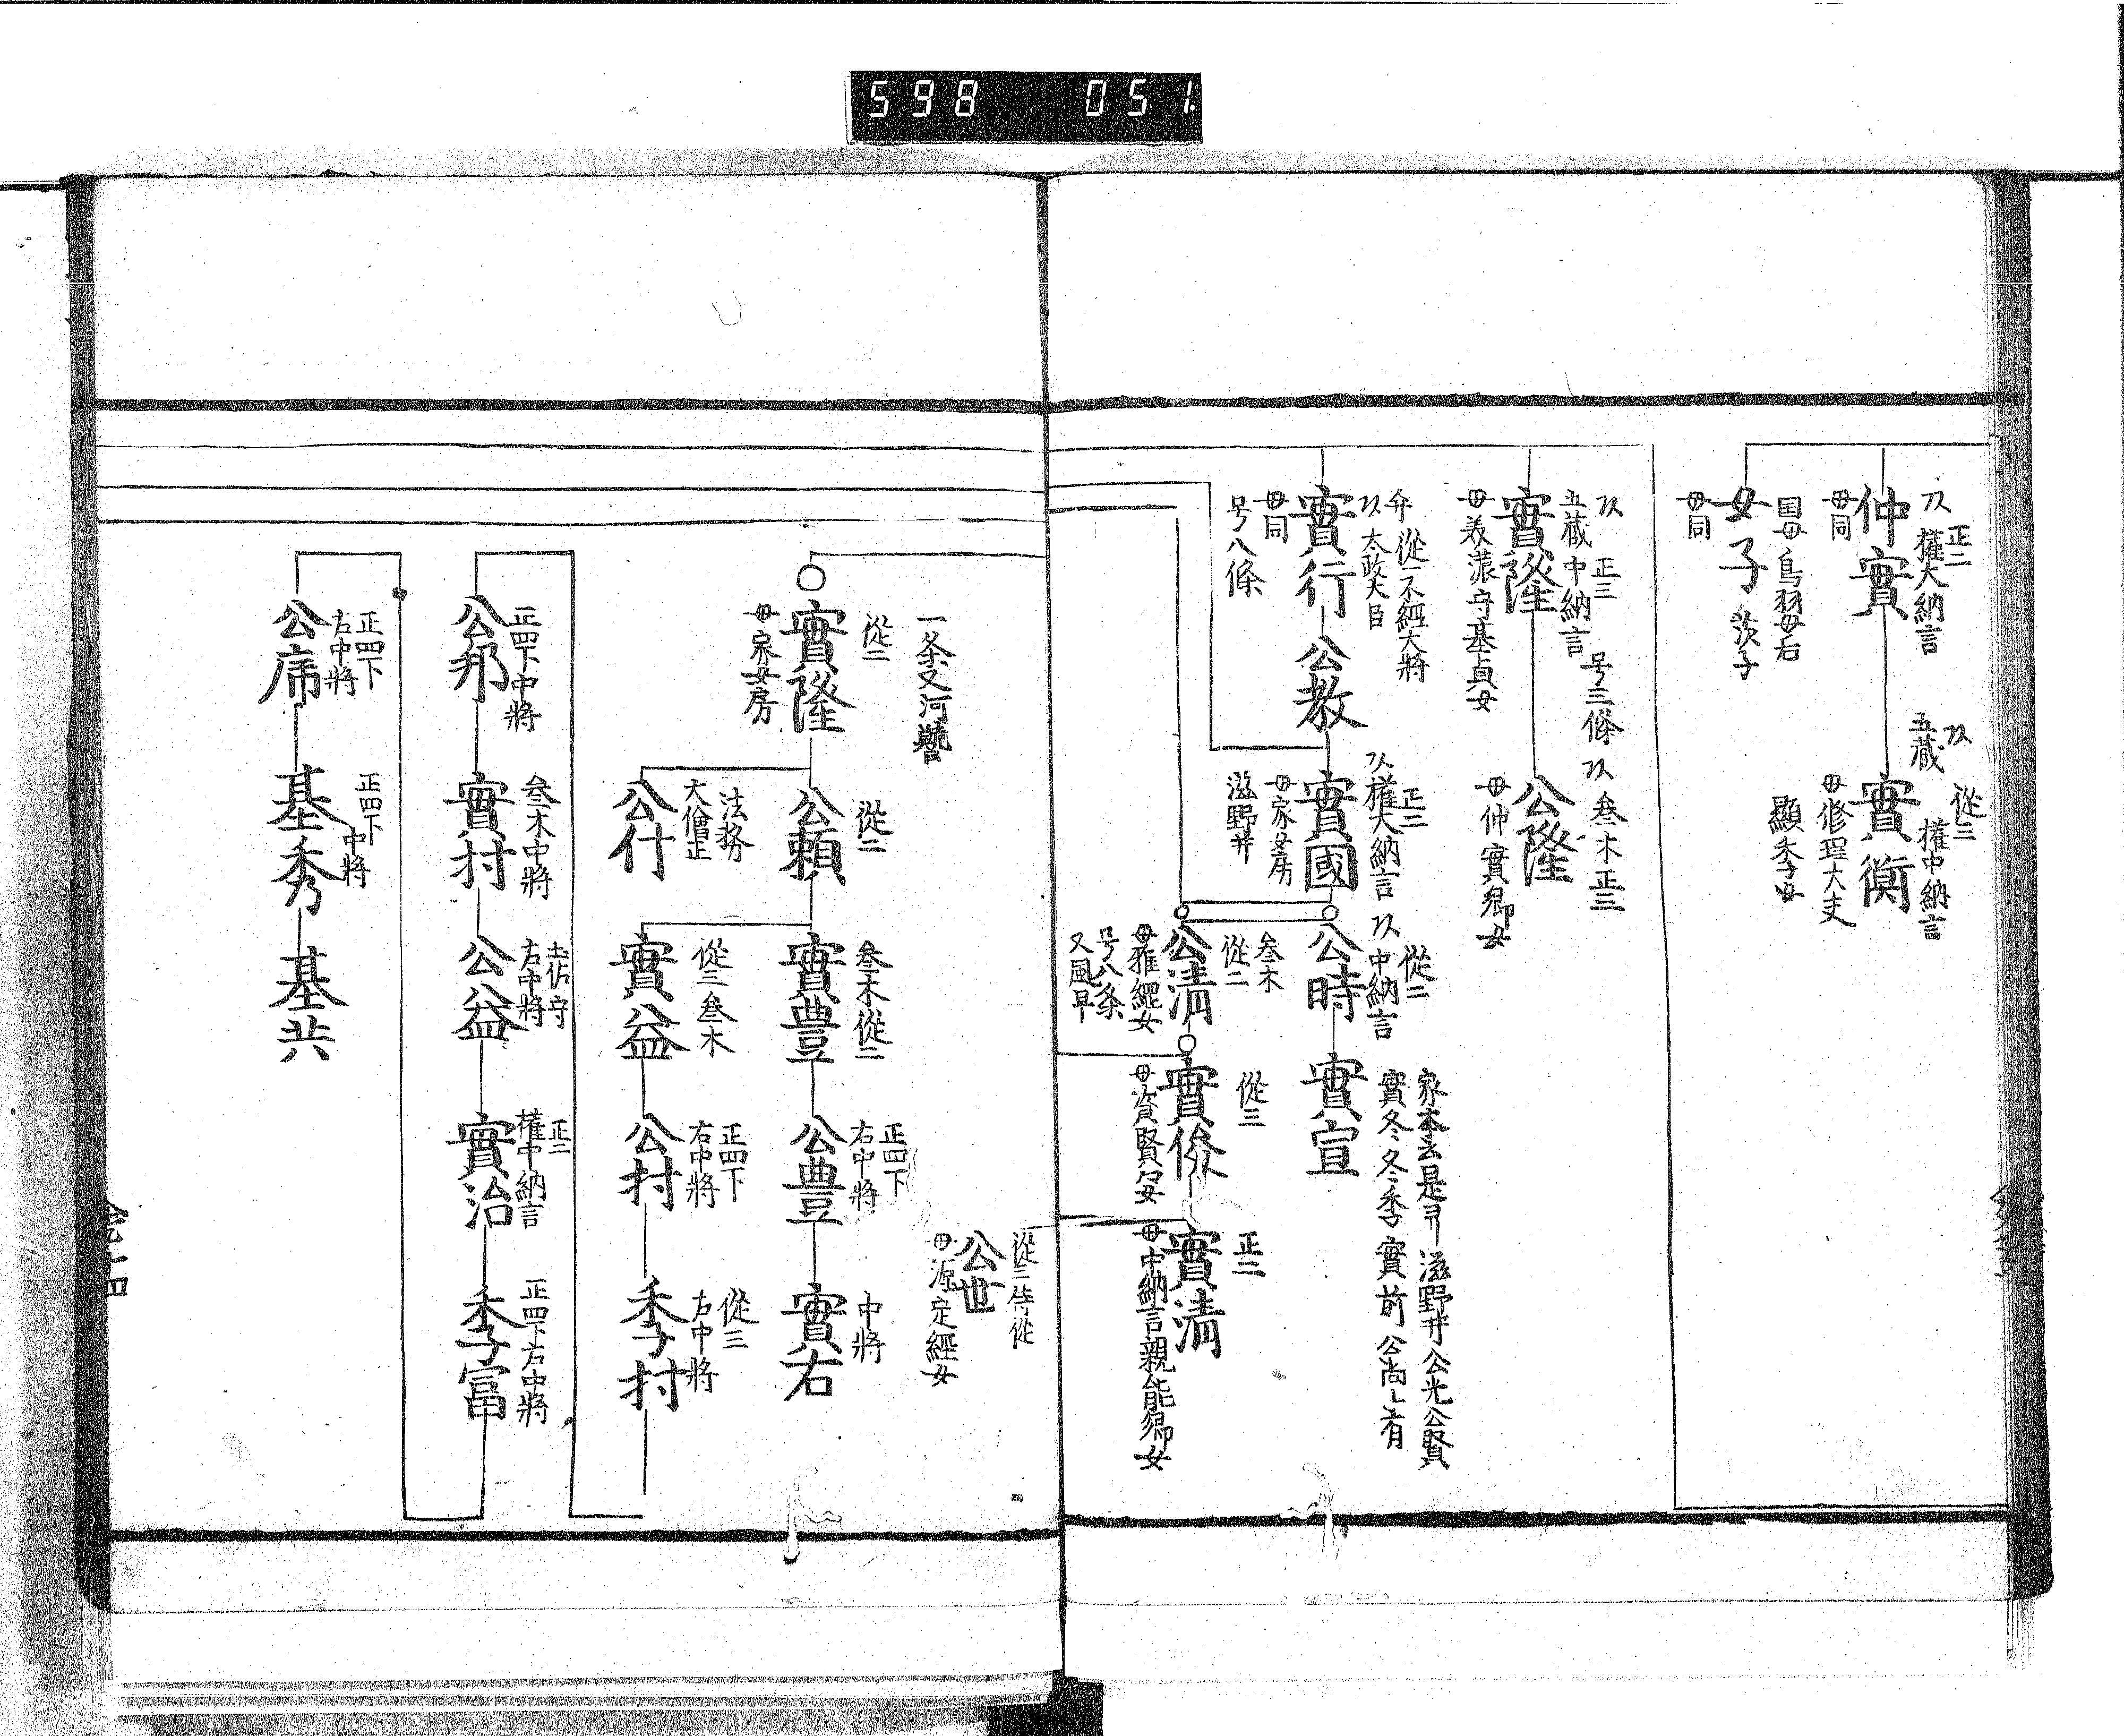 598 051.
正二
権大納言
仲實
母同
従三
権中納言
五蔵
實衡
母修理大夫
顯季女
国母鳥羽母后
女子
母同
正三
五蔵 中納言
實隆
母美濃守基貞女
号三條
叁木正三
公隆
母仲實卿女
従一不經大将
太政大臣
實行
母同
号八條
公教
正二
権大納言
實國
母家女房
滋野井
従二
中納言
公時
實宣
家本云是ヨリ滋野井公光公賢
實冬冬季實前公尚
叁木
従二
公清
母雅縄女
号八条
又風早
従三
實俊
母資賢女
正二
實清
母中納言親能卿女
従三侍従
公世
母源定經女
一条又河
従二
實隆
母家女房
従二
公頼
法務
大僧正
公什
叁木従二
實豊
従三叁木
實益
正四下
右中将
公豊
正四下
右中将
公村
中将
實右
従三
右中将
季村
正四下中将
公邦
叁木中将
實村
土佐守
右中将
公益
正二
権中納言
實治
正四下右中将
季富
正四下
右中将
公席
正四下
中将
基秀
基共